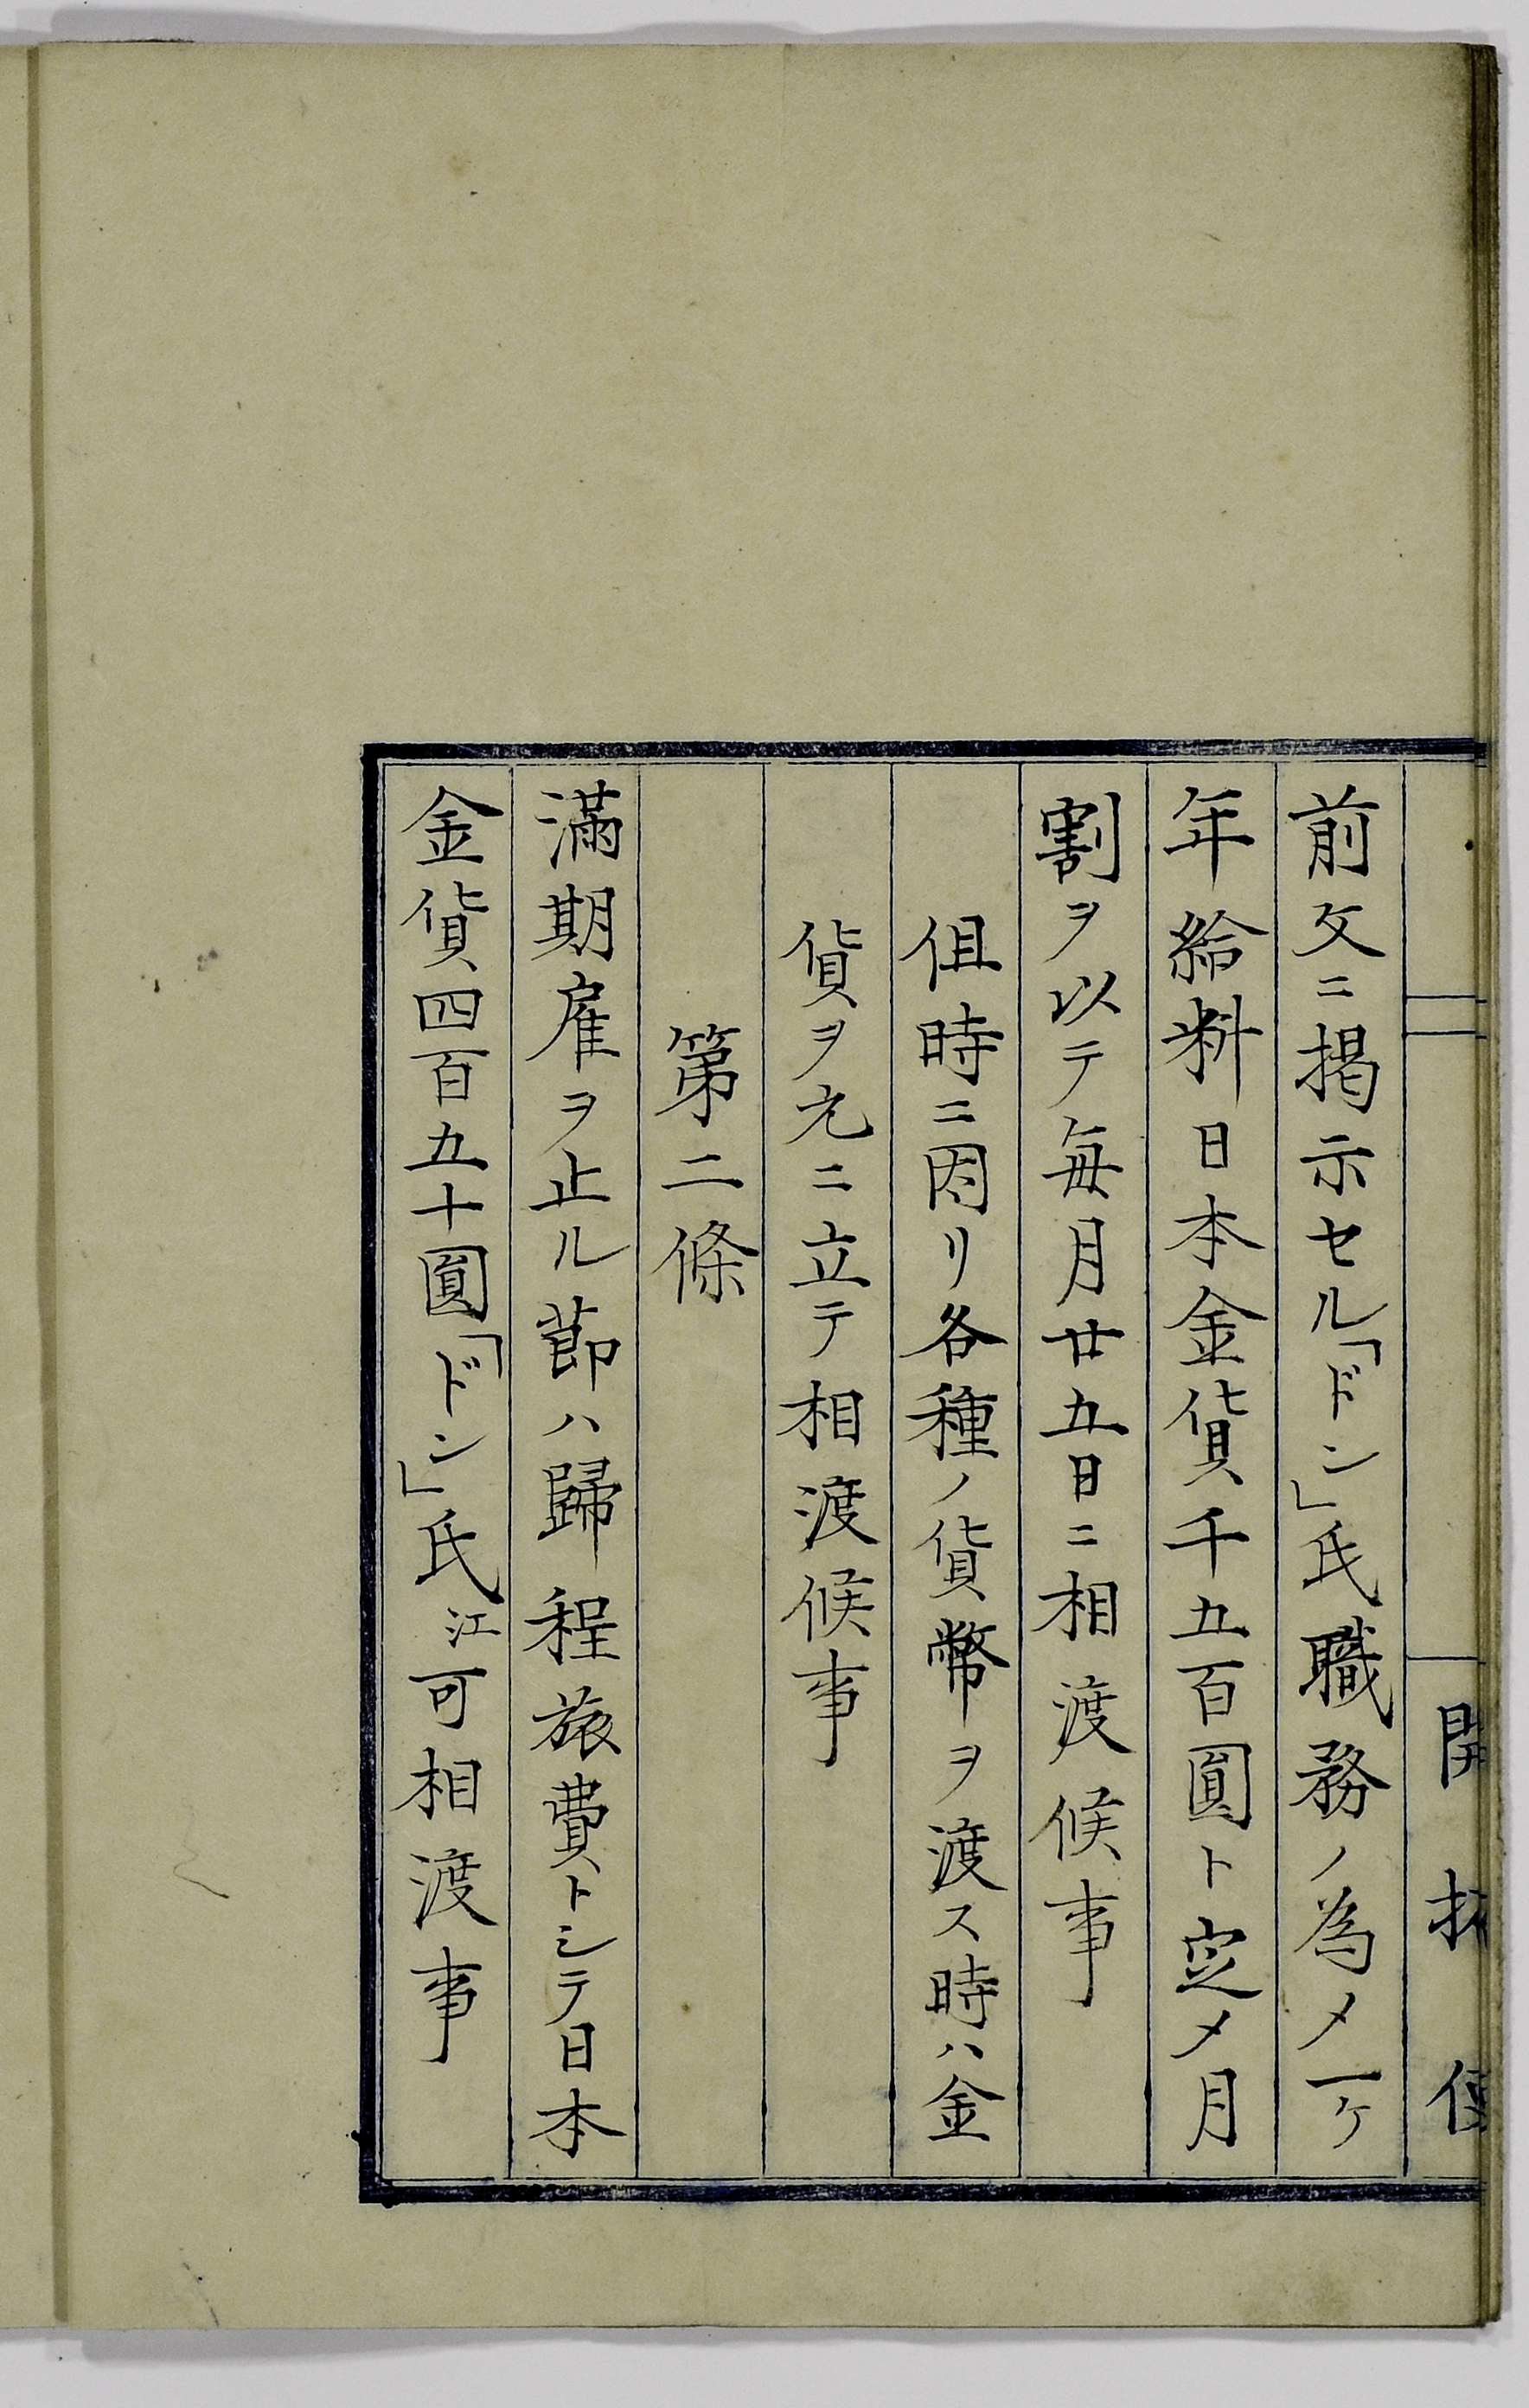 開拓使
前文ニ掲示セル「ドン」氏職務ノ為メ一ケ
年給料日本金貨千五百圓ト定メ月
割ヲ以テ毎月廿五日ニ相渡候事
但時ニ因リ各種ノ貨幣ヲ渡ス時ハ金
貨ヲ元ニ立テ相渡候事
第二條
満期雇ヲ止ル節ハ歸程旅費トシテ日本
金貨四百五十圓「ドン」氏江可相渡事